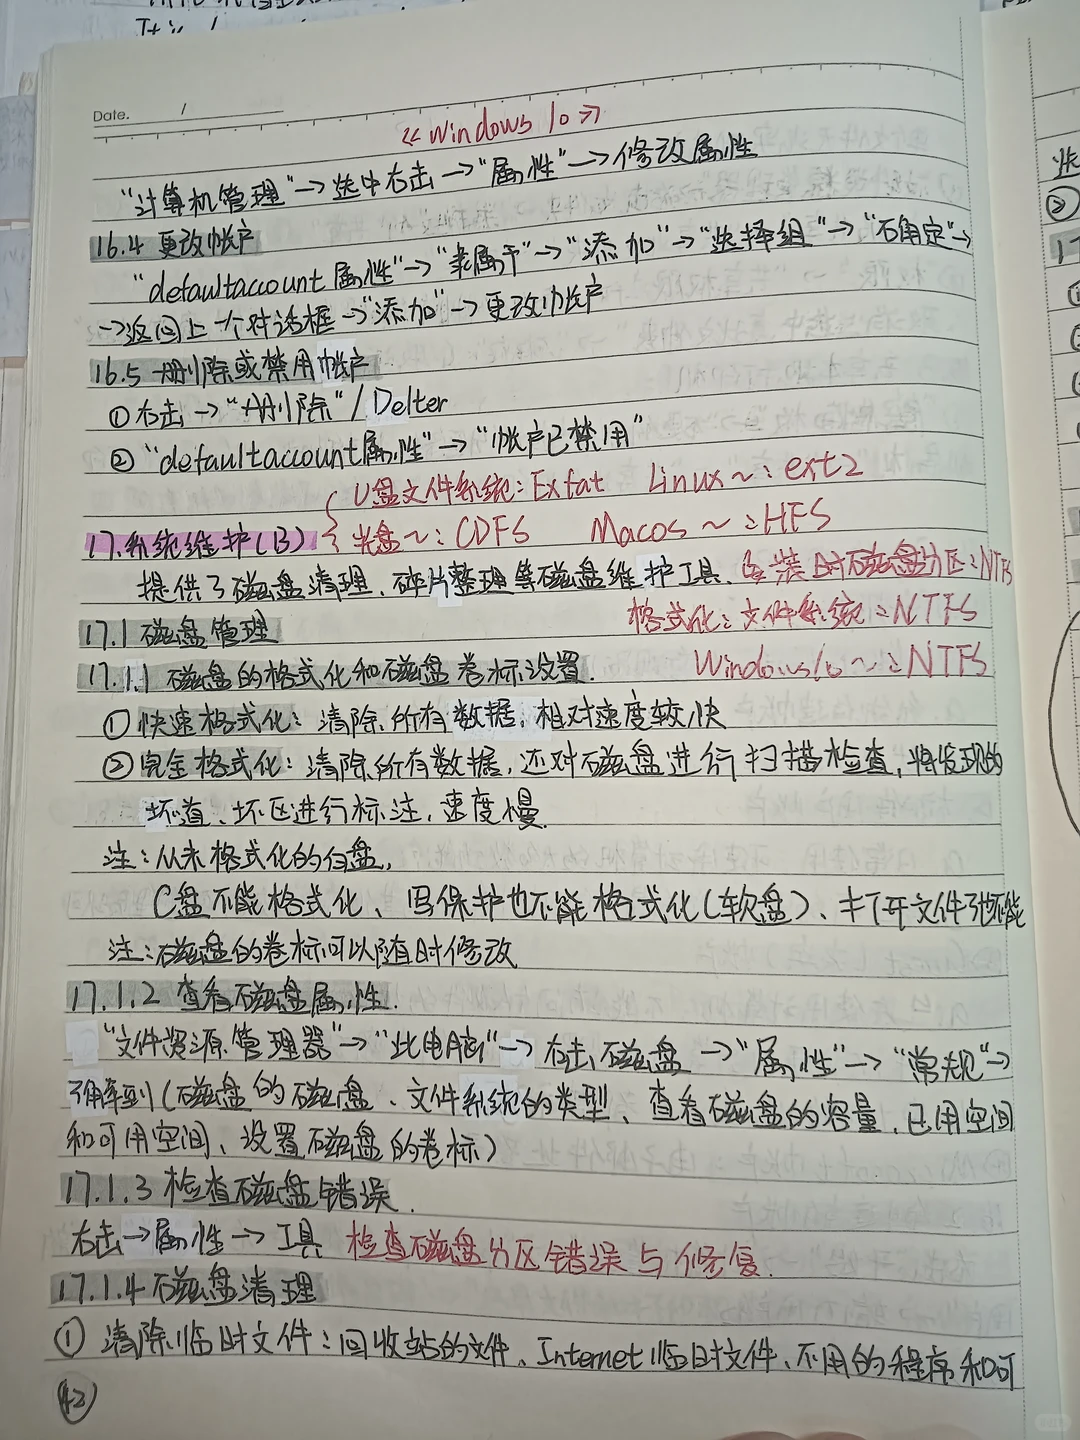 Date. /
《windows 10》
"计算机管理"→选中右击→"属性"→修改属性
16.4 更改帐户
"defaultaccount 属性"→"隶属于"→"添加"→"选择组"→"确定"→
→返回上一个对话框→"添加"→更改帐户
16.5 删除或禁用帐户
①右击→"删除"/Delter
②"defaultaccount属性"→"帐户已禁用"
U盘文件系统:Exfat Linux~:ext2
17.系统维护(B) 光盘~:CDFS Macos~:HFS
提供了磁盘清理、碎片整理等磁盘维护工具. 安装时磁盘分区:NTFS
格式化:文件系统:NTFS
17.1 磁盘管理
Windows10~:NTFS
17.1.1 磁盘的格式化和磁盘卷标设置.
①快速格式化:清除所有数据,相对速度较快
②完全格式化:清除所有数据,还对磁盘进行扫描检查,将发现的
坏道、坏区进行标注,速度慢.
注:从未格式化的白盘,
C盘不能格式化、写保护也不能格式化(软盘)、打开文件了也不能
注:磁盘的卷标可以随时修改
17.1.2 查看磁盘属性.
"文件资源管理器"→"此电脑"→右击磁盘→"属性"→"常规"→
了解到(磁盘的磁盘、文件系统的类型、查看磁盘的容量、已用空间
和可用空间、设置磁盘的卷标)
17.1.3 检查磁盘错误.
右击→属性→工具 检查磁盘分区错误与修复.
17.1.4 磁盘清理
① 清除临时文件:回收站的文件、Internet临时文件、不用的程序和可
42